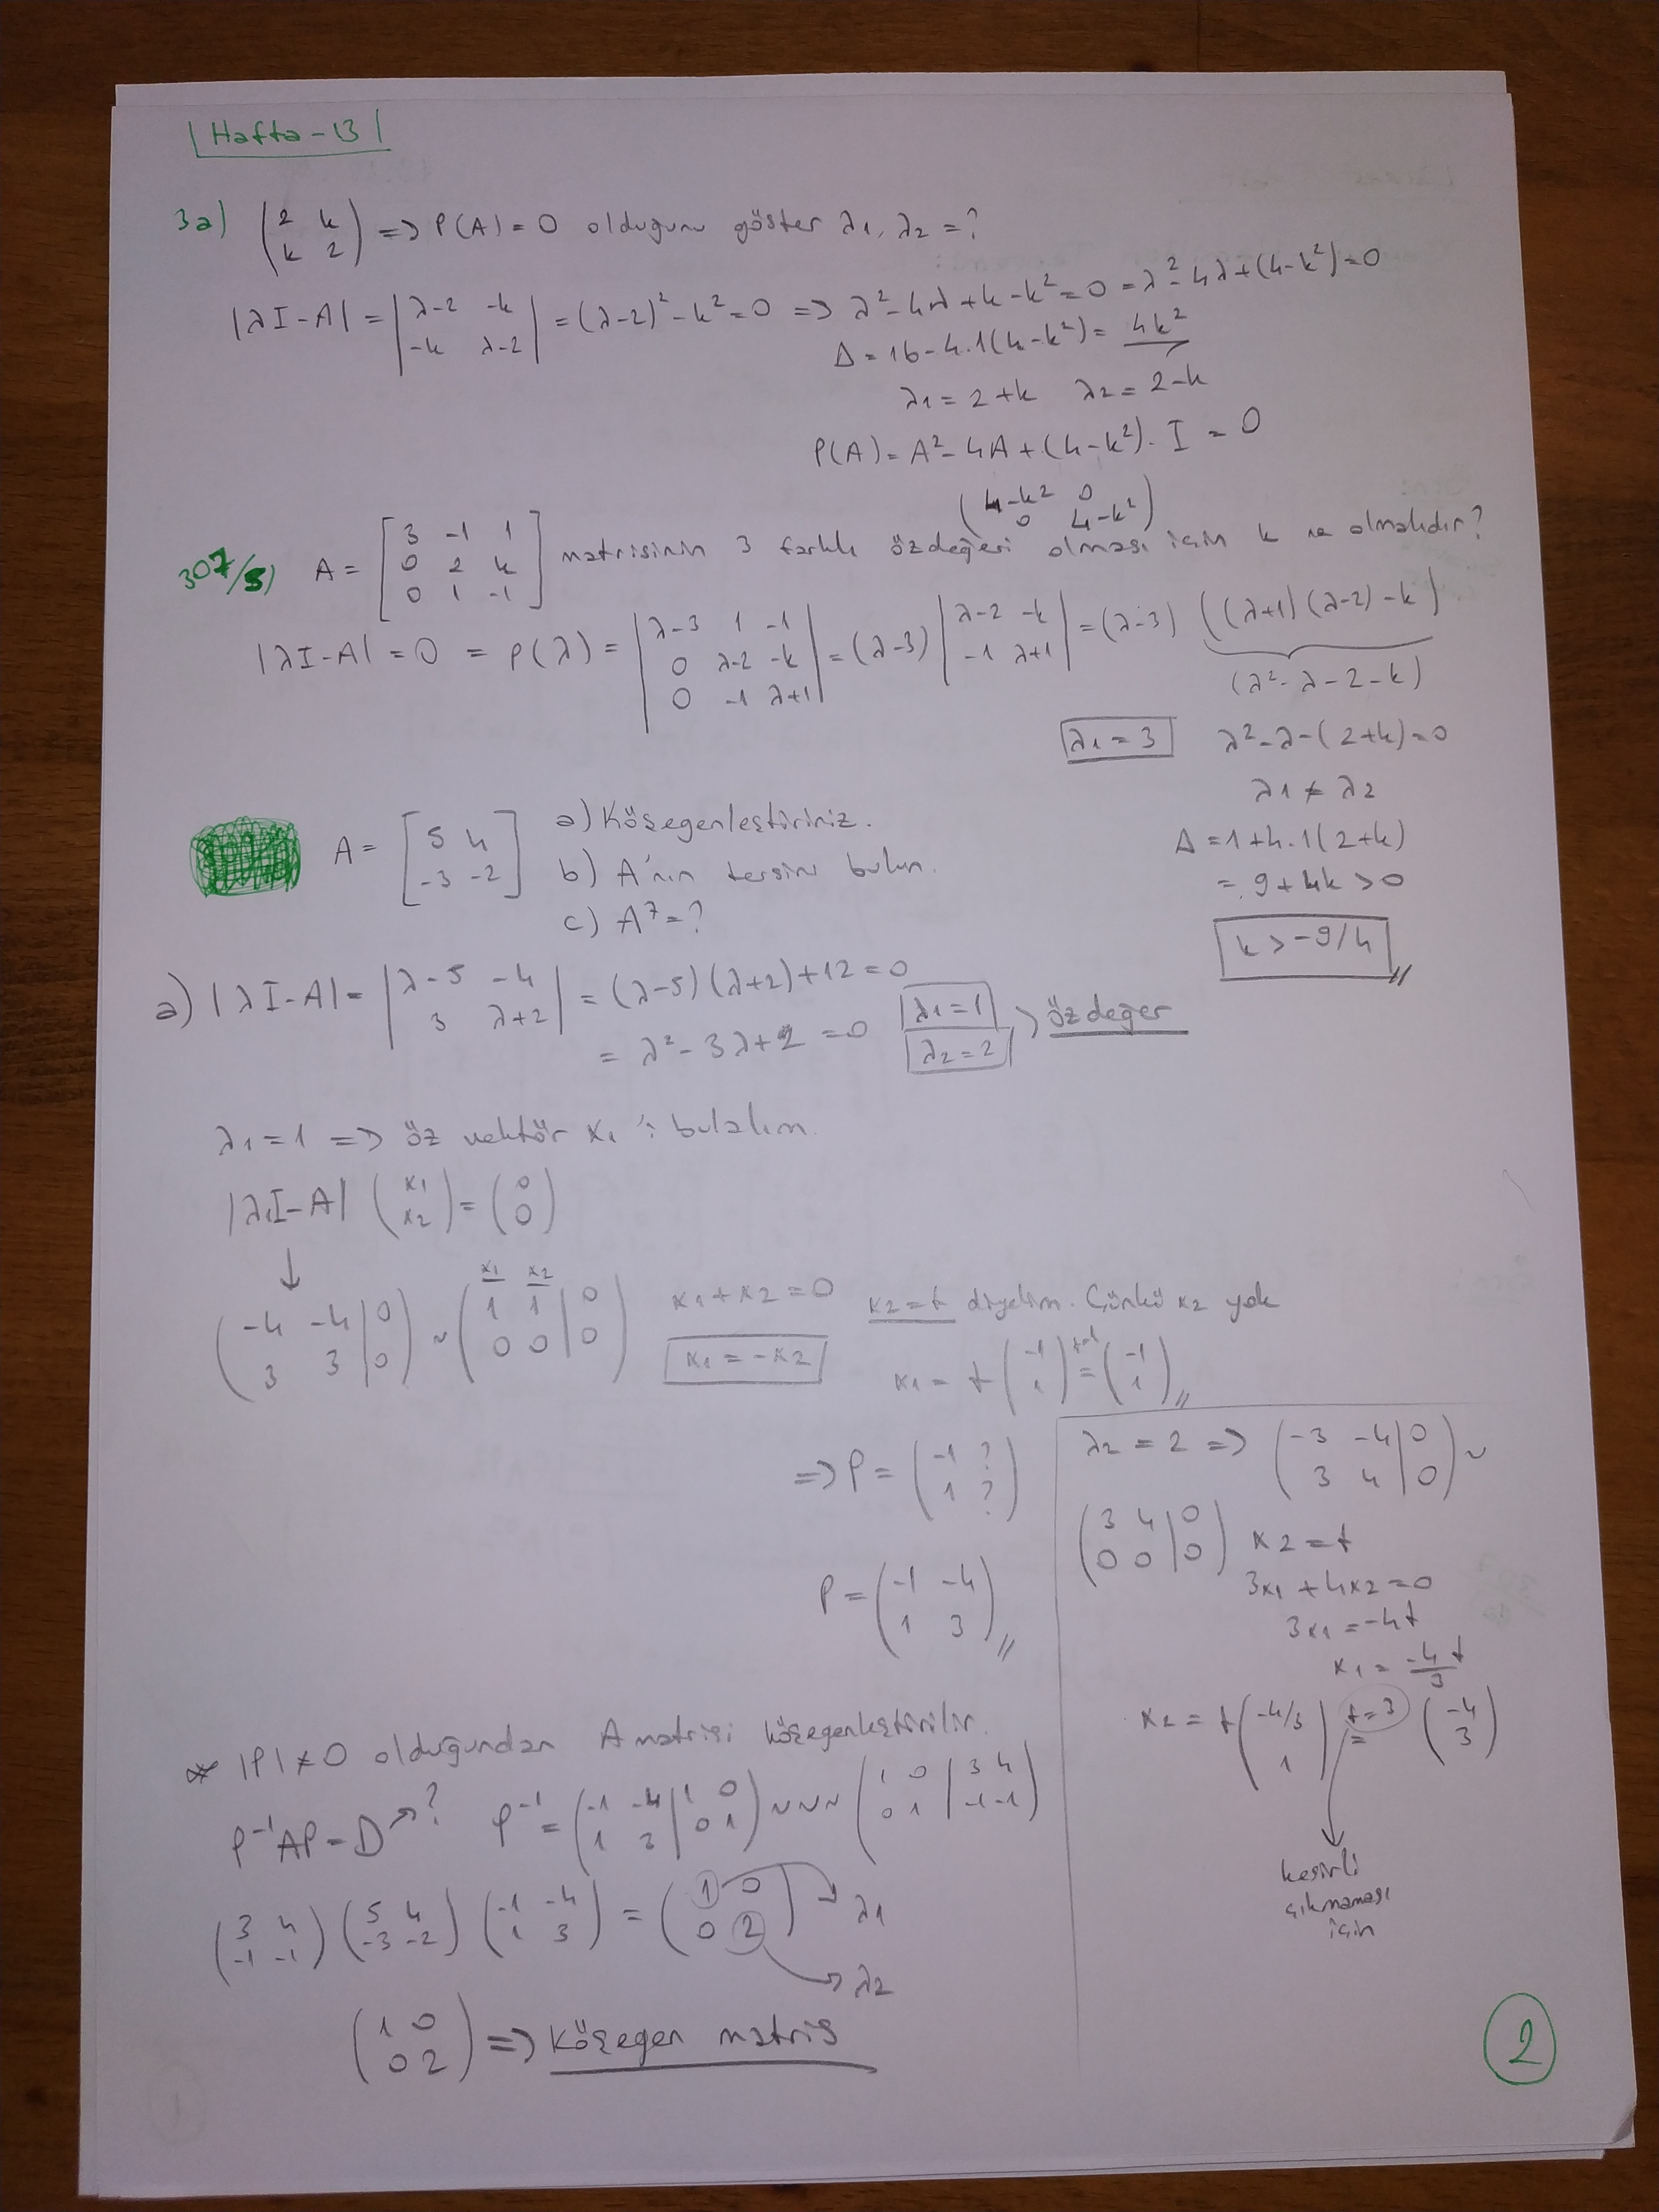 Hafta-13
3a) (2 k / k 2) => P(A) = 0 olduğunu göster λ1, λ2 = ?
|λI-A| = |λ-2 -k / -k λ-2| = (λ-2)² - k² = 0 => λ² - 4λ + 4 - k² = 0 = λ² - 4λ + (4-k²) = 0
Δ = 16 - 4.1(4-k²) = 4k²
λ1 = 2+k λ2 = 2-k
P(A) = A² - 4A + (4-k²). I = 0
(4-k² 0 / 0 4-k²)
307/5) A = [3 -1 1 / 0 2 k / 0 1 -1] matrisinin 3 farklı özdeğeri olması için k ne olmalıdır?
|λI-A| = 0 = P(λ) = |λ-3 1 -1 / 0 λ-2 -k / 0 -1 λ+1| = (λ-3) |λ-2 -k / -1 λ+1| = (λ-3) ((λ+1)(λ-2)-k)
(λ² - λ - 2 - k)
λ1 = 3 λ² - λ - (2+k) = 0
λ1 ≠ λ2
Δ = 1+4.1(2+k)
= 9+4k > 0
k > -9/4
A = [5 4 / -3 -2] a) Köşegenleştiriniz.
b) A'nın tersini bulun.
c) A⁷ = ?
a) |λI-A| = |λ-5 -4 / 3 λ+2| = (λ-5)(λ+2)+12 = 0
= λ² - 3λ + 2 = 0
λ1 = 1
λ2 = 2
> özdeğer
λ1 = 1 => öz vektör x1 'i bulalım.
|λ1I-A| (x1 / x2) = (0 / 0)
↓
(-4 -4 | 0 / 3 3 | 0) ~ (x1 x2 / 1 1 | 0 / 0 0 | 0) x1+x2 = 0 x2 = t diyelim. Çünkü x2 yok
x1 = -x2 x1 = t (-1 / 1) t=1 = (-1 / 1)
=> P = (-1 ? / 1 ?)
P = (-1 -4 / 1 3)
λ2 = 2 => (-3 -4 | 0 / 3 4 | 0) ~
(3 4 | 0 / 0 0 | 0) x2 = t
3x1 + 4x2 = 0
3x1 = -4t
x1 = -4/3 t
x2 = t (-4/3 / 1) t=3 = (-4 / 3)
kesirli
çıkmaması
için
* |P| ≠ 0 olduğundan A matrisi köşegenleştirilir.
P⁻¹AP = D ? P⁻¹ = (-1 -4 | 1 0 / 1 3 | 0 1) ~~~ (1 0 | 3 4 / 0 1 | -1 -1)
(3 4 / -1 -1) (5 4 / -3 -2) (-1 -4 / 1 3) = (1 0 / 0 2) → λ1
→ λ2
(1 0 / 0 2) => Köşegen matris
2